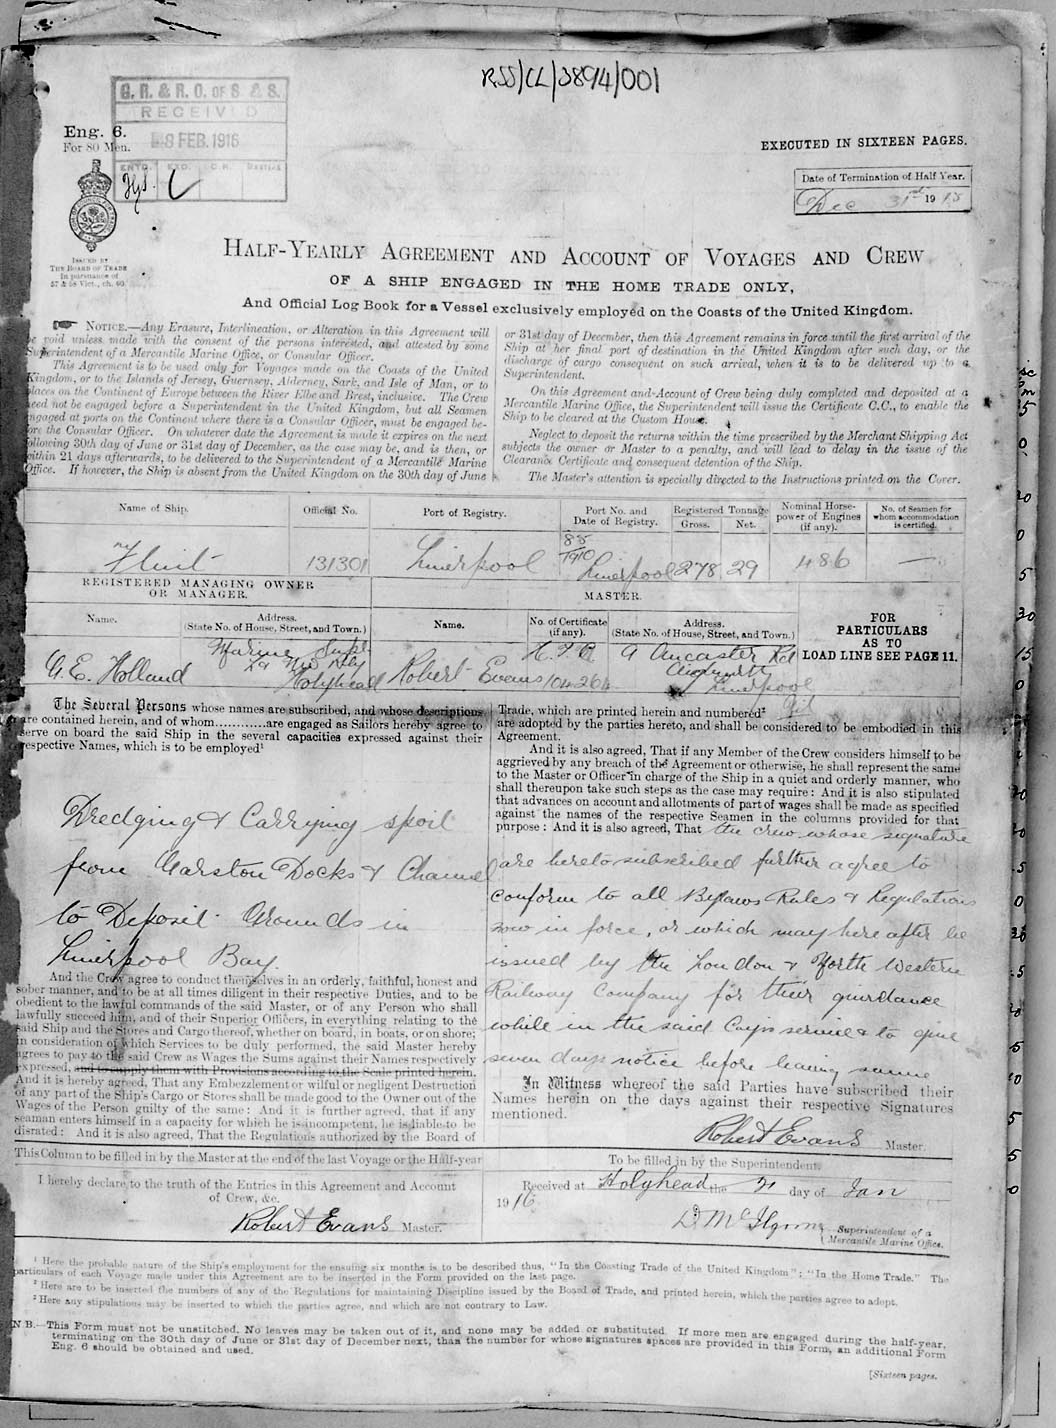 RSS/CL/3894/001
G. R. & R. O. OF S. & S.
RECEIVED
8 FEB. 1916
Eng. 6.
For 80 Men.
EXECUTED IN SIXTEEN PAGES.
Date of Termination of Half Year.
Dec 31st 1915
ISSUED BY
THE BOARD OF TRADE
In pursuance of
57 & 58 Vict., ch. 60.
HALF-YEARLY AGREEMENT AND ACCOUNT OF VOYAGES AND CREW
OF A SHIP ENGAGED IN THE HOME TRADE ONLY,
And Official Log Book for a Vessel exclusively employed on the Coasts of the United Kingdom.
NOTICE.—Any Erasure, Interlineation, or Alteration in this Agreement will
be void unless made with the consent of the persons interested, and attested by some
Superintendent of a Mercantile Marine Office, or Consular Officer.
This Agreement is to be used only for Voyages made on the Coasts of the United
Kingdom, or to the Islands of Jersey, Guernsey, Alderney, Sark, and Isle of Man, or to
places on the Continent of Europe between the River Elbe and Brest, inclusive. The Crew
need not be engaged before a Superintendent in the United Kingdom, but all Seamen
engaged at ports on the Continent where there is a Consular Officer, must be engaged be-
fore the Consular Officer. On whatever date the Agreement is made it expires on the next
following 30th day of June or 31st day of December, as the case may be, and is then, or
within 21 days afterwards, to be delivered to the Superintendent of a Mercantile Marine
Office. If however, the Ship is absent from the United Kingdom on the 30th day of June
or 31st day of December, then this Agreement remains in force until the first arrival of the
Ship at her final port of destination in the United Kingdom after such day, or the
discharge of cargo consequent on such arrival, when it is to be delivered up to a
Superintendent.
On this Agreement and Account of Crew being duly completed and deposited at a
Mercantile Marine Office, the Superintendent will issue the Certificate C.C., to enable the
Ship to be cleared at the Custom House.
Neglect to deposit the returns within the time prescribed by the Merchant Shipping Act
subjects the owner or Master to a penalty, and will lead to delay in the issue of the
Clearance Certificate and consequent detention of the Ship.
The Master's attention is specially directed to the Instructions printed on the Cover.
Name of Ship. Official No. Port of Registry. Port No. and Date of Registry. Registered Tonnage Gross. Net. Nominal Horse-power of Engines (if any). No. of Seamen for whom accommodation is certified.
Flint 131301 Liverpool 85/1910 Liverpool 278 29 486 —
REGISTERED MANAGING OWNER
OR MANAGER.
MASTER.
Name. Address. (State No. of House, Street, and Town.) Name. No. of Certificate (if any). Address. (State No. of House, Street, and Town.)
FOR
PARTICULARS
AS TO
LOAD LINE SEE PAGE 11.
G. E. Holland Marine Supt L & NW Rly Holyhead Robert Evans 104264 9 Ancaster Rd Liverpool
The Several Persons whose names are subscribed, and whose descriptions
are contained herein, and of whom............are engaged as Sailors hereby agree to
serve on board the said Ship in the several capacities expressed against their
respective Names, which is to be employed¹
Dredging & Carrying spoil
from Garston Docks & Channel
to Deposit Grounds in
Liverpool Bay.
And the Crew agree to conduct themselves in an orderly, faithful, honest and
sober manner, and to be at all times diligent in their respective Duties, and to be
obedient to the lawful commands of the said Master, or of any Person who shall
lawfully succeed him, and of their Superior Officers, in everything relating to the
said Ship and the Stores and Cargo thereof, whether on board, in boats, or on shore;
in consideration of which Services to be duly performed, the said Master hereby
agrees to pay to the said Crew as Wages the Sums against their Names respectively
expressed, and to supply them with Provisions according to the Scale printed herein.
And it is hereby agreed, That any Embezzlement or wilful or negligent Destruction
of any part of the Ship's Cargo or Stores shall be made good to the Owner out of the
Wages of the Person guilty of the same: And it is further agreed, that if any
seaman enters himself in a capacity for which he is incompetent, he is liable to be
disrated: And it is also agreed, That the Regulations authorized by the Board of
Trade, which are printed herein and numbered²
are adopted by the parties hereto, and shall be considered to be embodied in this
Agreement.
And it is also agreed, That if any Member of the Crew considers himself to be
aggrieved by any breach of the Agreement or otherwise, he shall represent the same
to the Master or Officer in charge of the Ship in a quiet and orderly manner, who
shall thereupon take such steps as the case may require: And it is also stipulated
that advances on account and allotments of part of wages shall be made as specified
against the names of the respective Seamen in the columns provided for that
purpose: And it is also agreed, That the crew whose signature
are hereto subscribed further agree to
conform to all Bylaws Rules & Regulations
now in force, or which may hereafter be
issued by the London & North Western
Railway Company for their guidance
while in the said Coys service & to give
seven days notice before leaving same
In Witness whereof the said Parties have subscribed their
Names herein on the days against their respective Signatures
mentioned.
Robert Evans Master.
This Column to be filled in by the Master at the end of the last Voyage or the Half-year
I hereby declare to the truth of the Entries in this Agreement and Account
of Crew, &c.
Robert Evans Master.
To be filled in by the Superintendent.
Received at Holyhead the 21 day of Jan
1916
Superintendent of a
Mercantile Marine Office.
¹ Here the probable nature of the Ship's employment for the ensuing six months is to be described thus, "In the Coasting Trade of the United Kingdom"; "In the Home Trade." The
particulars of each Voyage made under this Agreement are to be inserted in the Form provided on the last page.
² Here are to be inserted the numbers of any of the Regulations for maintaining Discipline issued by the Board of Trade, and printed herein, which the parties agree to adopt.
³ Here any stipulations may be inserted to which the parties agree, and which are not contrary to Law.
N.B.—This Form must not be unstitched. No leaves may be taken out of it, and none may be added or substituted. If more men are engaged during the half-year,
terminating on the 30th day of June or 31st day of December next, than the number for whose signatures spaces are provided in this Form, an additional Form
Eng. 6 should be obtained and used.
[Sixteen pages.